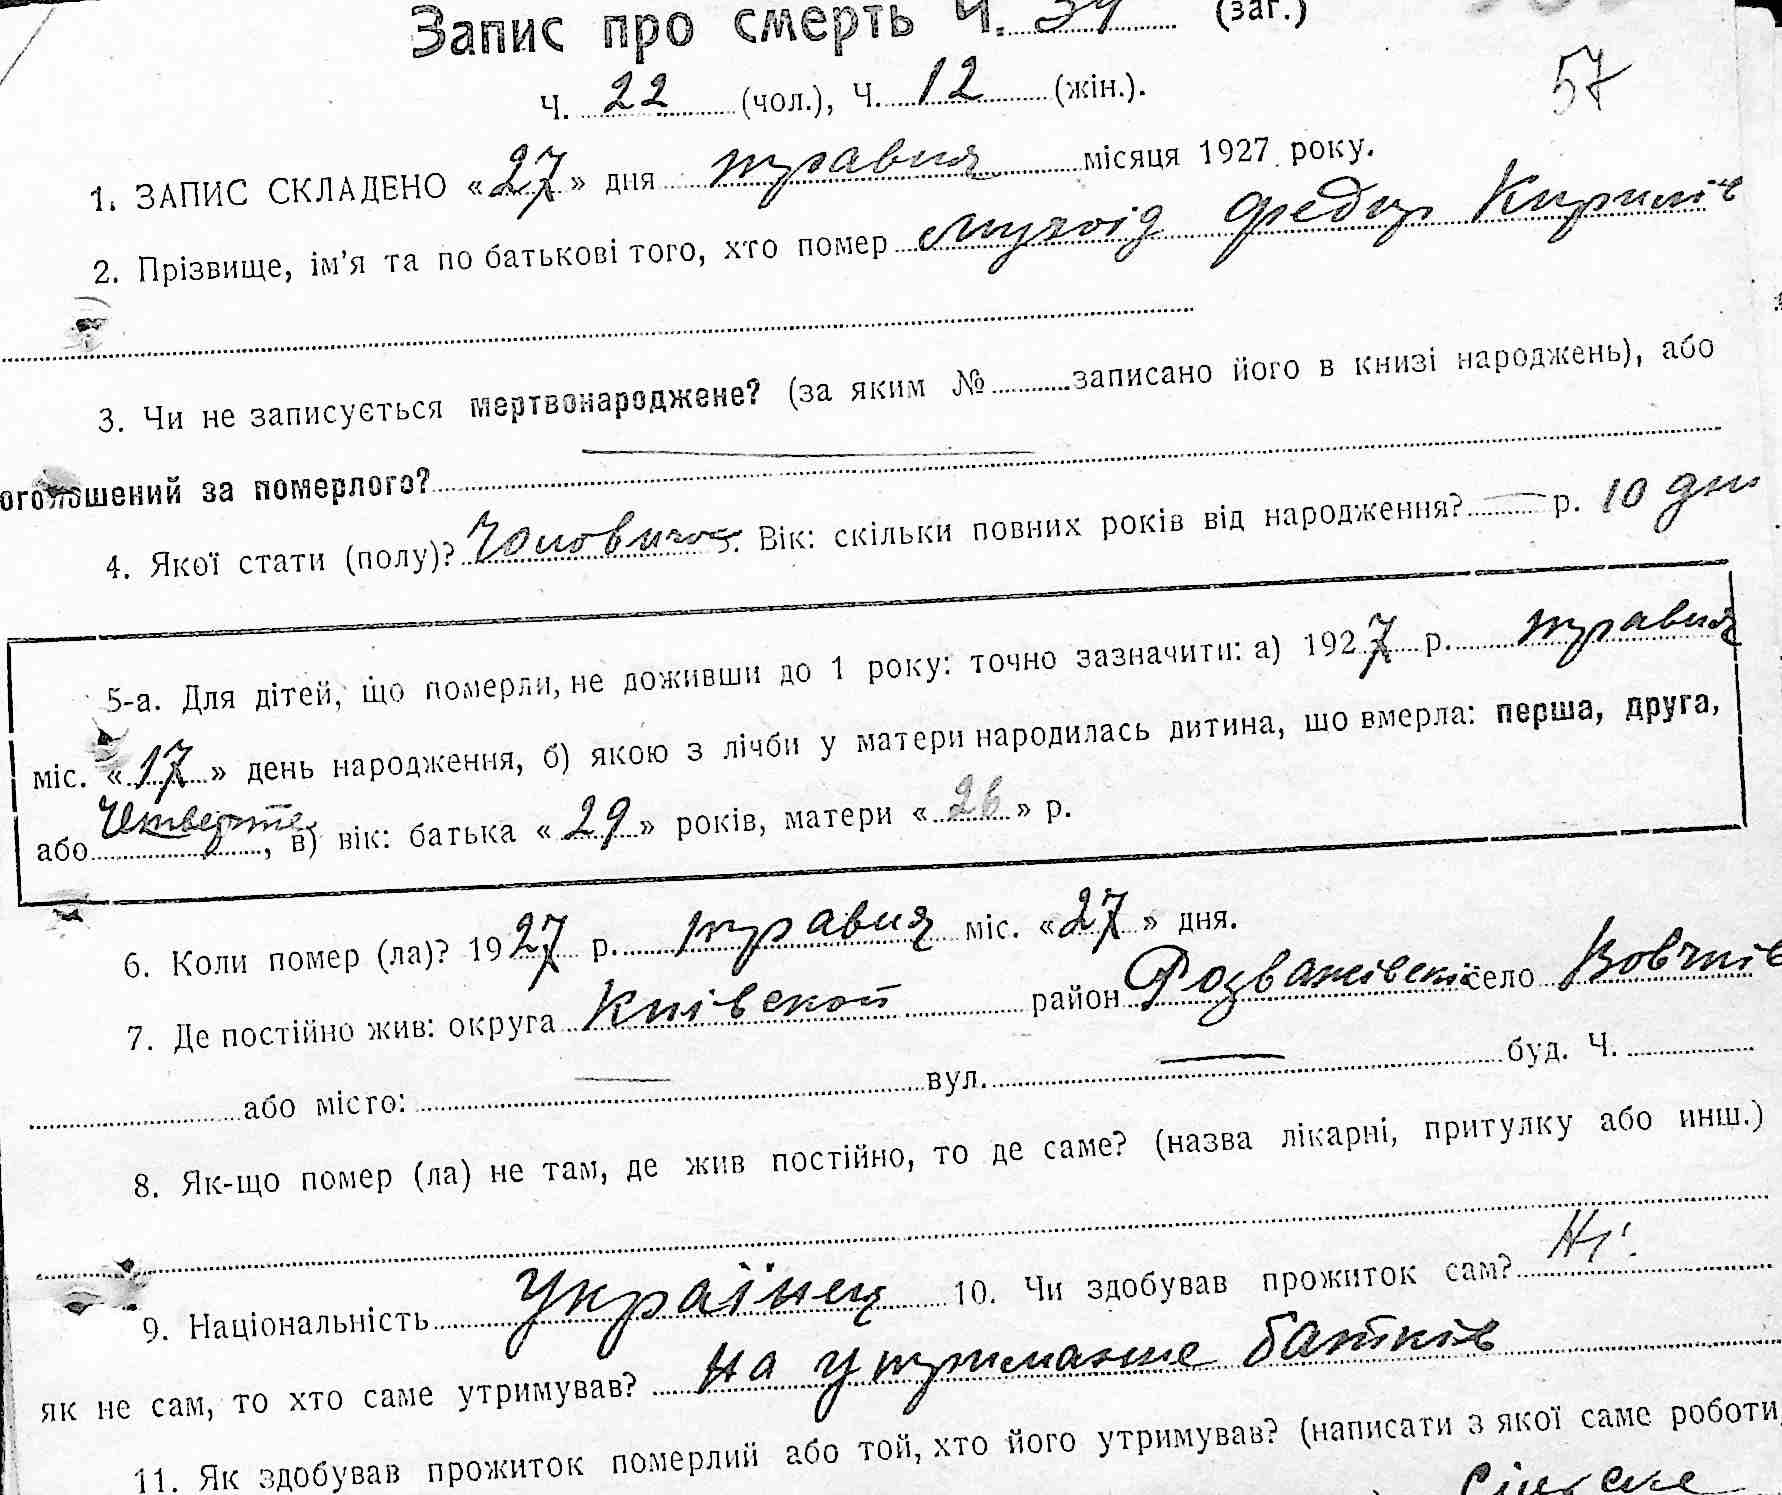 Запис про смерть Ч. 34 (заг.)
57
Ч. 22 (чол.), Ч. 12 (жін.).
1. ЗАПИС СКЛАДЕНО «27» дня травня місяця 1927 року.
2. Прізвище, ім'я та по батькові того, хто помер Мухоід Федир Кирилів
3. Чи не записується мертвонароджене? (за яким № записано його в книзі народжень), або
оголошений за померлого?
4. Якої стати (полу)? Чоловичоз. Вік: скільки повних років від народження? — р. 10 дни
5-а. Для дітей, що померли, не доживши до 1 року: точно зазначити: а) 1927 р. травня
міс. «17» день народження, б) якою з лічби у матери народилась дитина, шо вмерла: перша, друга,
або Четверте, в) вік: батька «29» років, матери «26» р.
6. Коли помер (ла)? 1927 р. травня міс. «27» дня.
7. Де постійно жив: округа Киівской район Розважівскі село Вовчків
або місто: — вул. — буд. Ч.
8. Як-що помер (ла) не там, де жив постійно, то де саме? (назва лікарні, притулку або инш.)
9. Національність Українец 10. Чи здобував прожиток сам? Ні.
як не сам, то хто саме утримував? На утримание батків
11. Як здобував прожиток померлий або той, хто його утримував? (написати з якої саме роботи,